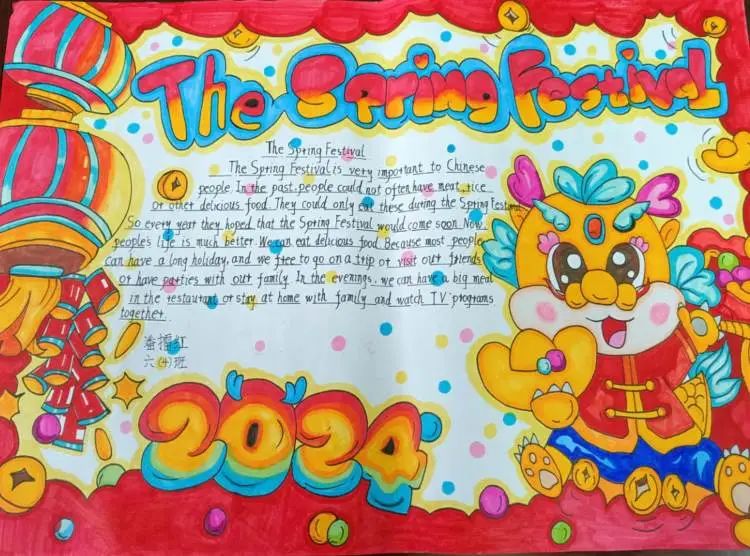 The Spring Festival
The Spring Festival
The Spring Festival is very important to Chinese
people. In the past, people could not often have meat, rice
or other delicious food. They could only eat these during the Spring Festival
So every year they hoped that the Spring Festival would come soon. Now,
people's life is much better. We can eat delicious food. Because most people
can have a long holiday, and we free to go on a trip or visit our friends
or have parties with our family. In the evenings, we can have a big meal
in the restaurant or stay at home with family and watch TV programs
together.
潘福红
六(4)班
2024